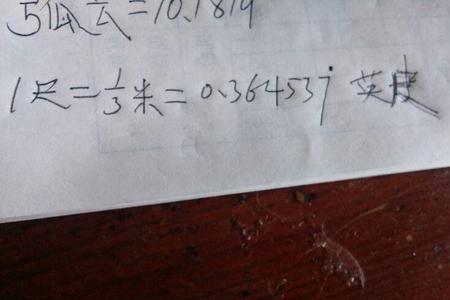 =10.1819
1尺=1/3米=0.364537 英